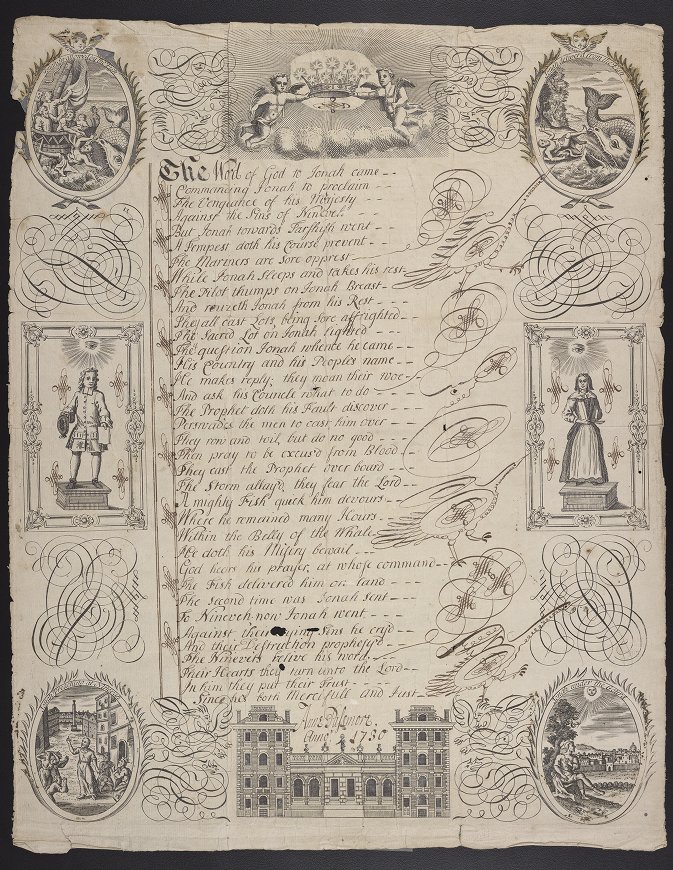 The Word of God to Jonah came - -
Commanding Jonah to proclaim - - -
The Vengeance of his Majesty - -
Against the Sins of Nineveh - - -
But Jonah towards Tarshish went - -
A Tempest doth his Course prevent - -
The Mariners are Sore opprest
While Jonah Sleeps and takes his rest
The Pilot thumps on Jonah Breast -
And rouzeth Jonah from his Rest - - -
They all cast Lots, being Sore affrighted - -
The Sacred Lot on Jonah lighted - - -
The question Jonah whence he came - -
His Country and his Peoples name - -
He makes reply; they moan their woe -
And ask his Councle what to do - - -
The Prophet doth his Fault discover - - -
Perswades the men to cast him over - -
They row and toil, but do no good - - -
Then pray to be excus'd from Blood -
They cast the Prophet over board - - -
The Storm allayd, they fear the Lord - -
A mighty Fish quick him devours - -
Where he remained many Hours - -
Within the Belly of the Whale
He doth his Misery bewail - - -
God hears his prayer, at whose command - -
The Fish delivered him on land - - -
The Second time was Jonah Sent - - -
To Nineveh now Jonah went - - -
Against their Sins he cry'd - -
And their Destruction prophesy'd - -
The Ninevets his word
Their Hearts they turn unto the Lord - -
In him they put their Trust - - -
Since hes both Mercifull and Just
Anno 1730